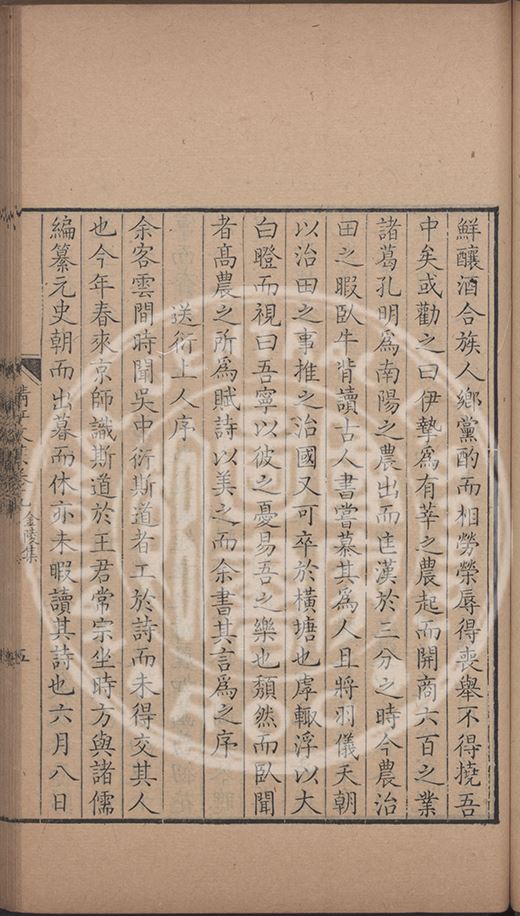 鮮釀酒合族人鄉黨酌而相勞榮辱得喪舉不得撓吾
中矣或勸之曰伊摯爲有莘之農起而開商六百之業
諸葛孔明爲南陽之農出而匡漢於三分之時今農治
田之暇臥牛背讀古人書嘗慕其爲人且將羽儀天朝
以治田之事推之治國又可卒於橫塘也虖輙浮以大
白瞪而視曰吾寧以彼之憂易吾之樂也頹然而臥聞
者高農之所爲賦詩以美之而余書其言爲之序
送衍上人序
余客雲間時聞吳中衍斯道者工於詩而未得交其人
也今年春來京師識斯道於王君常宗坐時方與諸儒
編纂元史朝而出暮而休亦未暇讀其詩也六月八日
金陵集